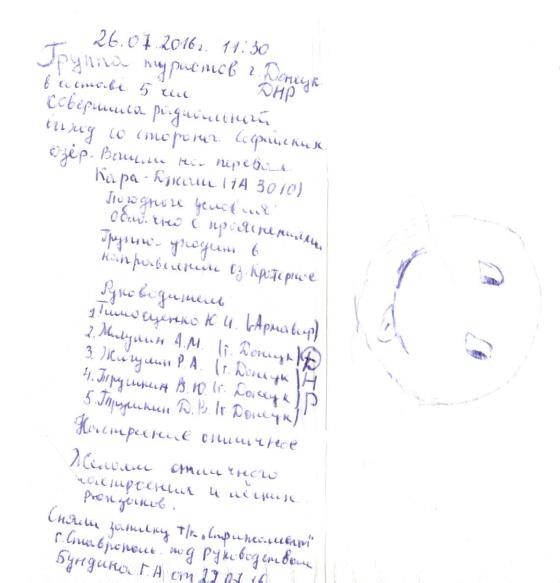 26.07.2016г. 11:30
Группа туристов г. Донецк
ДНР
в составе 5 чел
совершила радиальной
выход со стороны Софийских
озёр. Вышли на перевал
Кара-Джаш (1А 3010)
Погодные условия:
облачно с прояснениями
Группа уходит в
направлении оз. Кратерное
Руководитель
1. Тимощенко К.И. (г. Армавир)
2. Жигулин А.М. (г. Донецк) ДНР
3. Жигулин Р.А. (г. Донецк)
4. Трушкин В.Ю. (г. Донецк)
5. Трушкин Д.В. (г. Донецк)
Настроение отличное
Желаем отличного
настроения и лёгких
рюкзаков.
Сняли записку т/к
г. Ставрополь под руководством
Бундина Г.А от